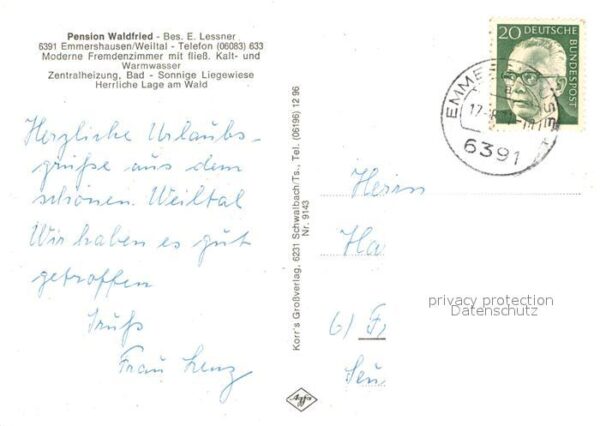 Pension Waldfried - Bes. E. Lessner
6391 Emmershausen/Weiltal - Telefon (06083) 633
Moderne Fremdenzimmer mit fließ. Kalt- und
Warmwasser
Zentralheizung, Bad - Sonnige Liegewiese
Herrliche Lage am Wald
Herzliche Urlaubs-
grüße aus dem
schönen Weiltal
Wir haben es gut
getroffen
Gruß
Frau Lenz
Korr's Großverlag, 6231 Schwalbach/Ts., Tel. (06196) 12 96
Nr. 9143
Agfa
20 DEUTSCHE
BUNDESPOST
EMME
6391
Herrn
Ha
6) F
privacy protection
Datenschutz